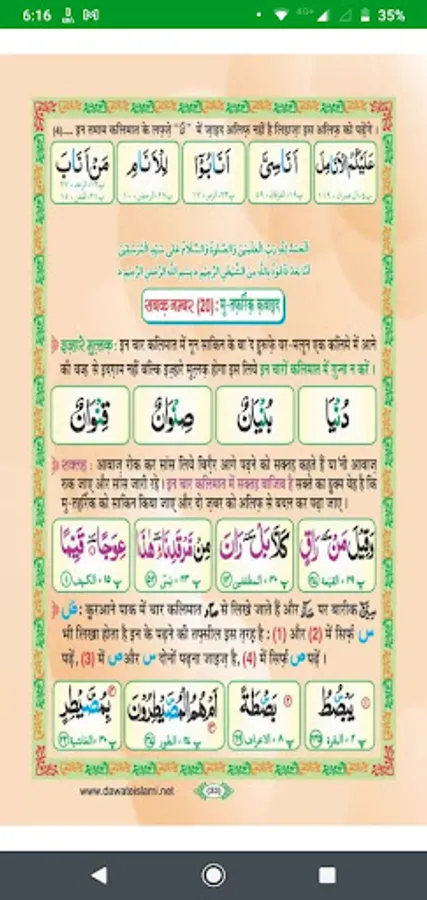 6:16
4G+
35%
(4)..... इन तमाम कलिमात के लफ़्ज़े "اَنَا" में ज़ाइद अलिफ़ नहीं है लिहाज़ा इस अलिफ़ को पढ़ेंगे ।
عَلَيْكُمُ الْاَنَامِلَ اَنَاسِىَّ اَنَابُوْٓا لِلْاَنَامِ مَنْ اَنَابَ
اَلْحَمْدُ لِلّٰهِ رَبِّ الْعٰلَمِيْنَ وَالصَّلٰوةُ وَالسَّلَامُ عَلٰى سَيِّدِ الْمُرْسَلِيْنَ
اَمَّا بَعْدُ فَاَعُوْذُ بِاللّٰهِ مِنَ الشَّيْطٰنِ الرَّجِيْمِ ط بِسْمِ اللّٰهِ الرَّحْمٰنِ الرَّحِيْمِ ط
सबक़ नम्बर (20) : मु-तफ़र्रिक़ क़वाइद
इज़्हारे मुत़्लक़ : इन चार कलिमात में नून साकिन के बा'द हुरूफ़े यर-मलून एक कलिमे में आने
की वजह से इदग़ाम नहीं बल्कि इज़्हारे मुत़्लक़ होगा इस लिये इन चारों कलिमात में ग़ुन्ना न करें ।
دُنْيَا بُنْيَانٌ صِنْوَانٌ قِنْوَانٌ
सक्तह : आवाज़ रोक कर सांस लिये बिग़ैर आगे पढ़ने को सक्तह कहते हैं या'नी आवाज़
रुक जाए और सांस जारी रहे । इन चार कलिमात में सक्तह वाजिब है सक्ते का हुक्म येह है कि
मु-तहर्रिक को साकिन किया जाए और दो ज़बर को अलिफ़ से बदल कर पढ़ा जाए ।
وَقِيْلَ مَنْ رَاقٍ كَلَّا بَلْ رَانَ مِنْ مَّرْقَدِنَا هٰذَا عِوَجًا قَيِّمًا
پ ٢٩، القيمة ٢٧ پ ٣٠، المطففين ١٤ پ ٢٣، يٰسٓ ٥٢ پ ١٥، الكهف ١
ص : क़ुरआने पाक में चार कलिमात ص से लिखे जाते हैं और ص पर बारीक س
भी लिखा होता है इन के पढ़ने की तफ़्सील इस त़रह़ है : (1) और (2) में सिर्फ़ س
पढ़ें, (3) में ص और س दोनों पढ़ना जाइज़ है, (4) में सिर्फ़ ص पढ़ें ।
يَبْصُۜطُ بَصْۜطَةً اَمْ هُمُ الْمُصَۜيْطِرُوْنَ بِمُصَۜيْطِرٍ
پ ٢، البقرة ٢٤٥ پ ٨، الاعراف ٦٩ پ ٢٧، الطور ٣٧ پ ٣٠، الغاشية ٢٢
www.dawateislami.net
(33)